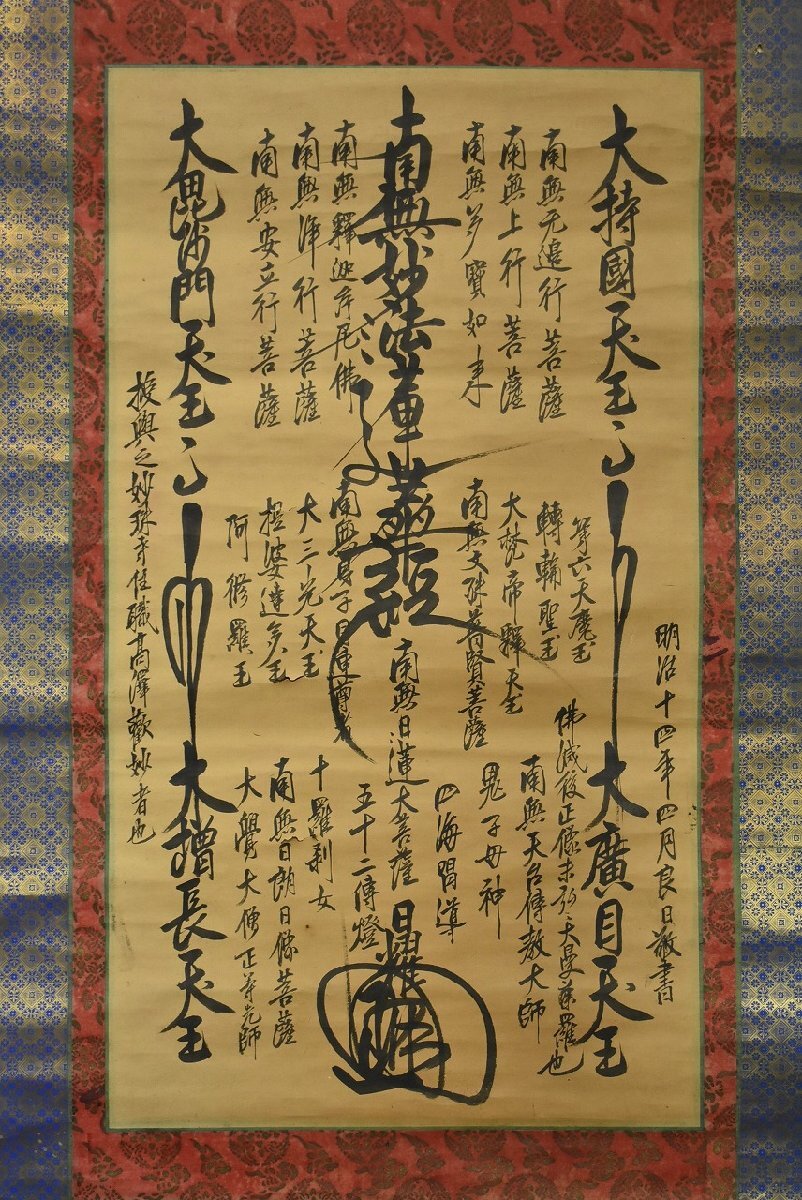 大持國天王
大廣目天王
明治十四年四月良日敬書
南無无邊行菩薩
南無上行菩薩
南無多寶如来
南無妙法蓮華經
南無釋迦牟尼佛
南無淨行菩薩
南無安立行菩薩
大毘沙門天王
大增長天王
第六天魔王
轉輪聖王
大梵帝釋天王
南無文殊普賢菩薩
南無身子目連尊者
大三光天王
提婆達多王
阿修羅王
佛滅後正像未弘大曼荼羅也
南無天台傳教大師
鬼子母神
四海唱導
南無日蓮大菩薩
五十二傳燈
日耀
十羅刹女
南無日朗日像菩薩
大覺大僧正等先師
授與之妙珠寺住職高澤歡妙者也